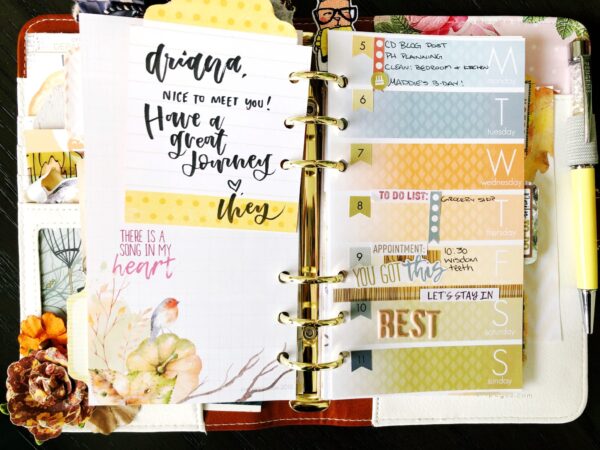 driana,
NICE TO MEET YOU!
Have a
great
Journey
they
THERE IS A
SONG IN MY
heart
5
CD BLOG POST
PH PLANNING
CLEAN: BEDROOM & KITCHEN
MADDIE'S B-DAY!
M
monday
6
T
tuesday
7
W
wednesday
TO DO LIST:
8
GROCERY SHOP
T
thursday
APPOINTMENT:
9
YOU GOT this
10:30
wisdom
teeth
F
LET'S STAY IN
10
REST
S
saturday
11
S
sunday